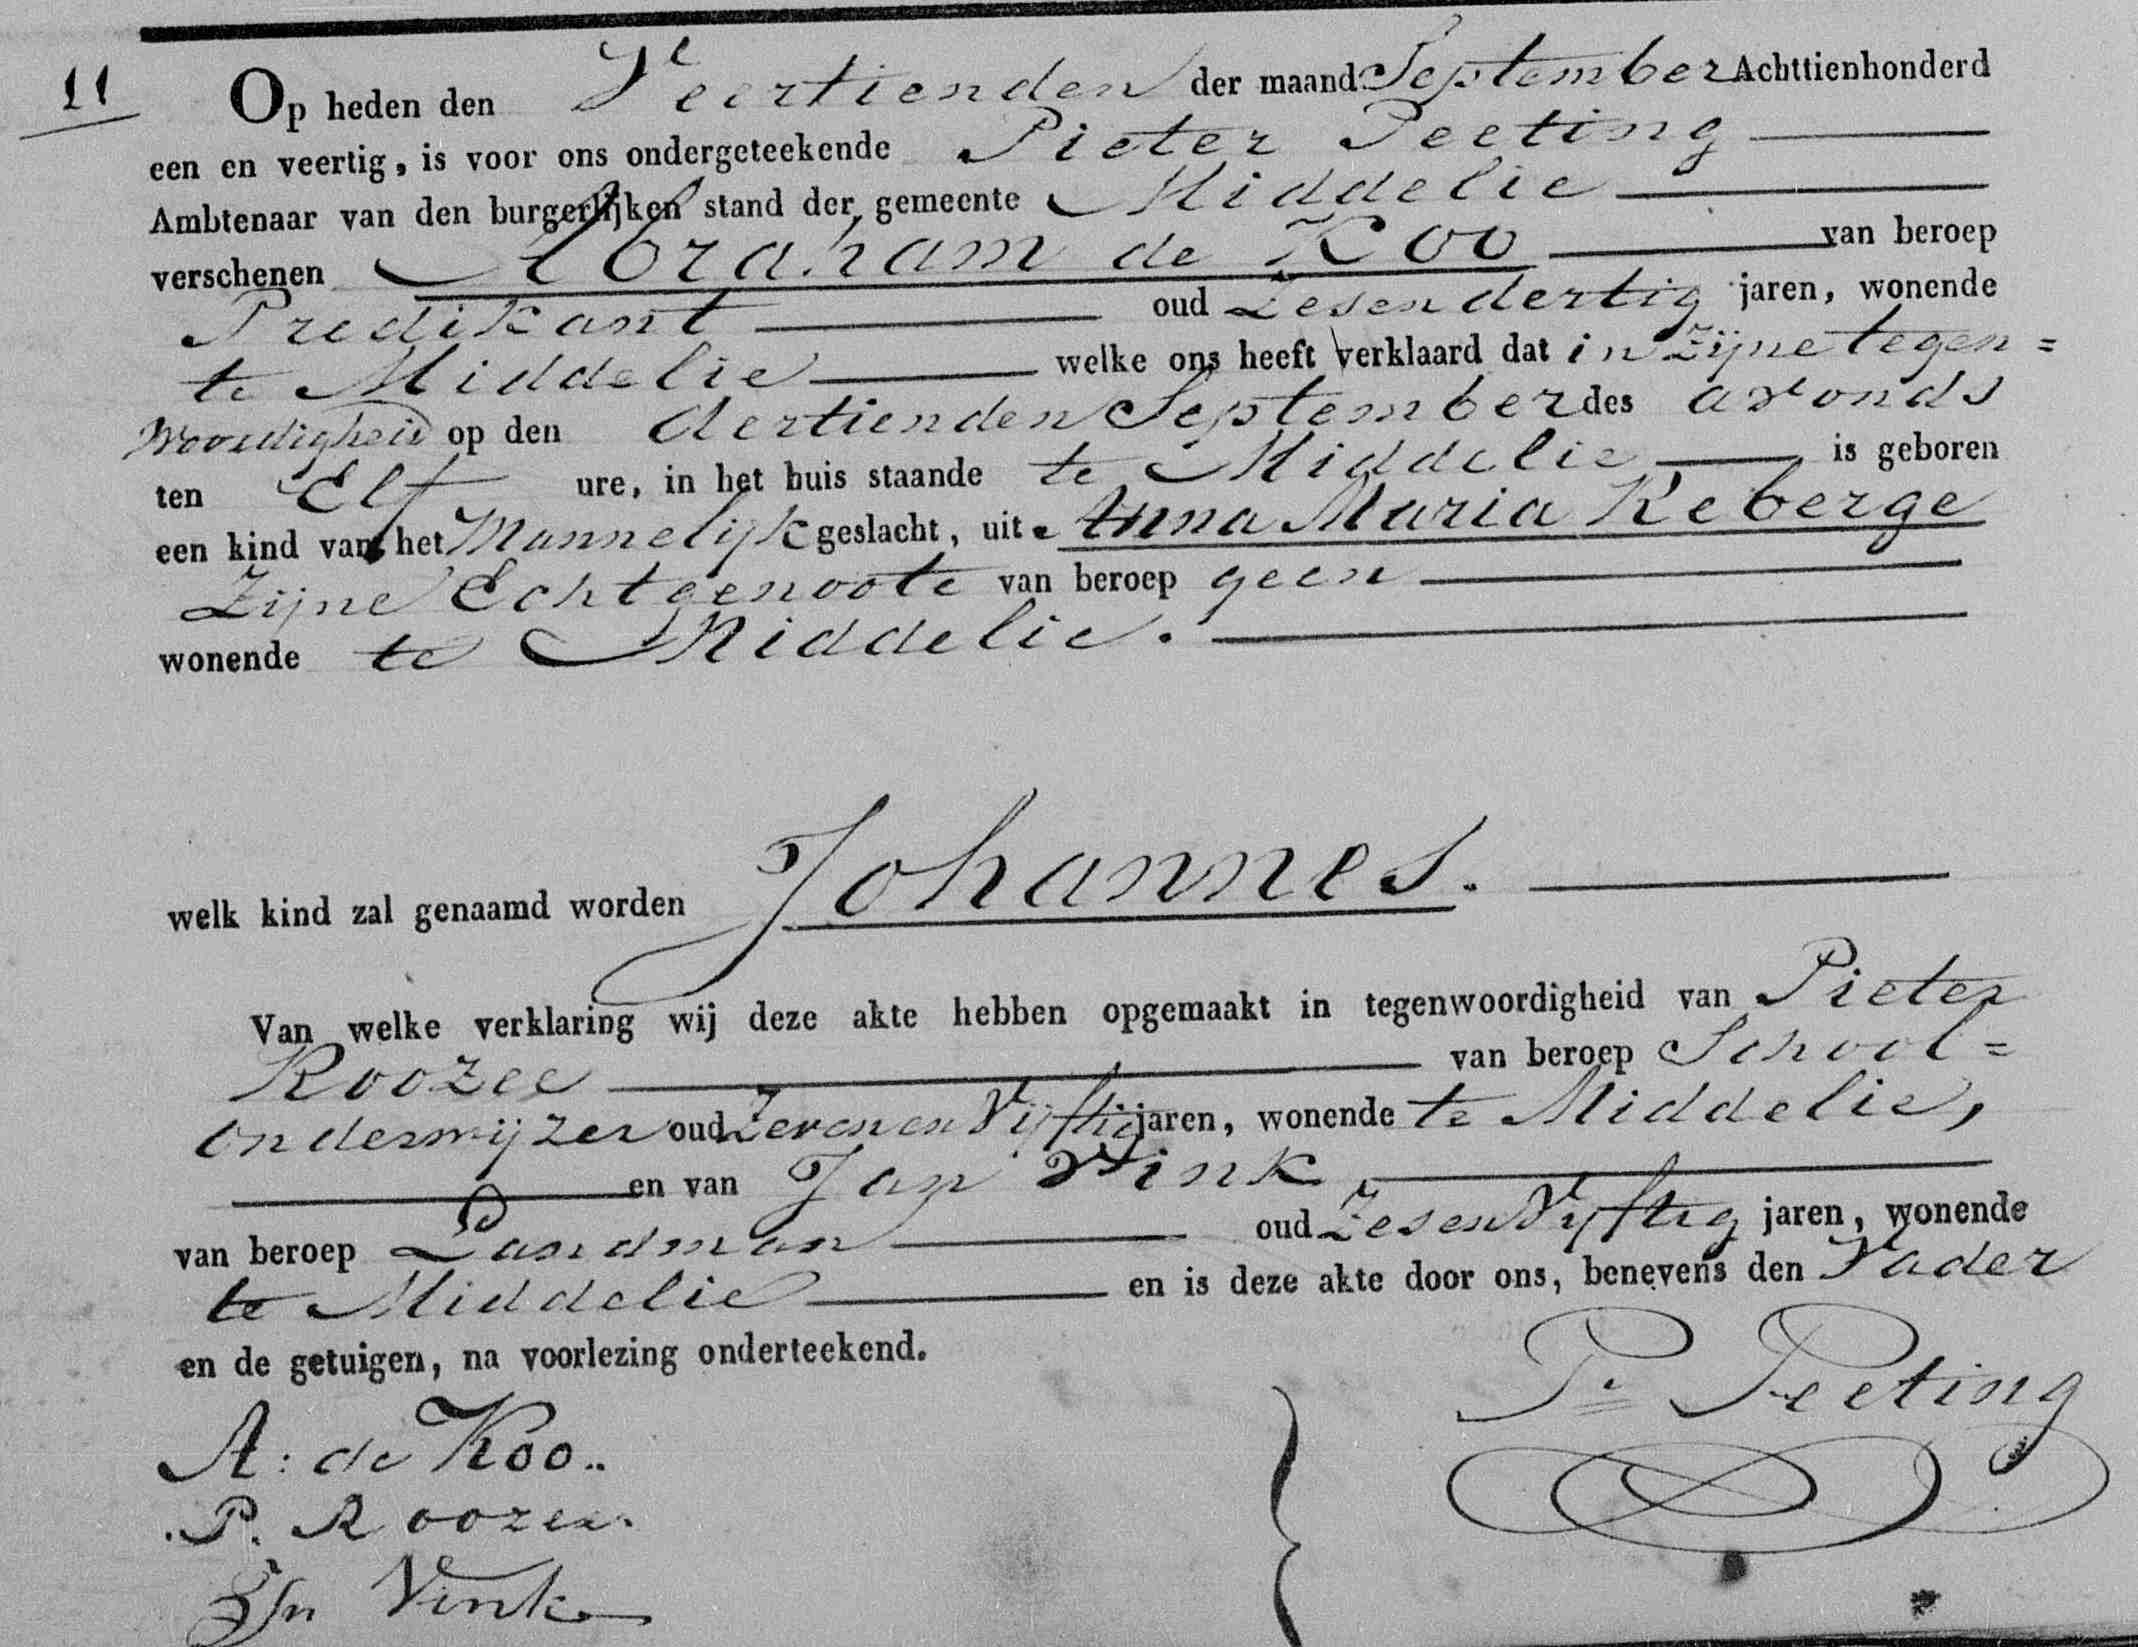 11
Op heden den Veertienden der maand September Achttienhonderd
een en veertig, is voor ons ondergeteekende Pieter Peeting
Ambtenaar van den burgerlijken stand der gemeente Middelie
verschenen Abraham de Koo van beroep
Predikant oud Zesendertig jaren, wonende
te Middelie welke ons heeft verklaard dat in Zijne tegen=
Woordigheid op den dertienden September des avonds
ten Elf ure, in het huis staande te Middelie is geboren
een kind van het Mannelijk geslacht, uit Anna Maria Reberge
Zijne Echtgenoote van beroep geen
wonende te Middelie.
welk kind zal genaamd worden Johannes.
Van welke verklaring wij deze akte hebben opgemaakt in tegenwoordigheid van Pieter
Roozee van beroep School=
onderwijzer oud Zevenen Vijftig jaren, wonende te Middelie,
en van Jan Vink
van beroep Landman oud Zesen Vyftig jaren, wonende
te Middelie en is deze akte door ons, benevens den Vader
en de getuigen, na voorlezing onderteekend.
Pr Peeting
A: de Koo..
P. Roozee.
Jn Vink